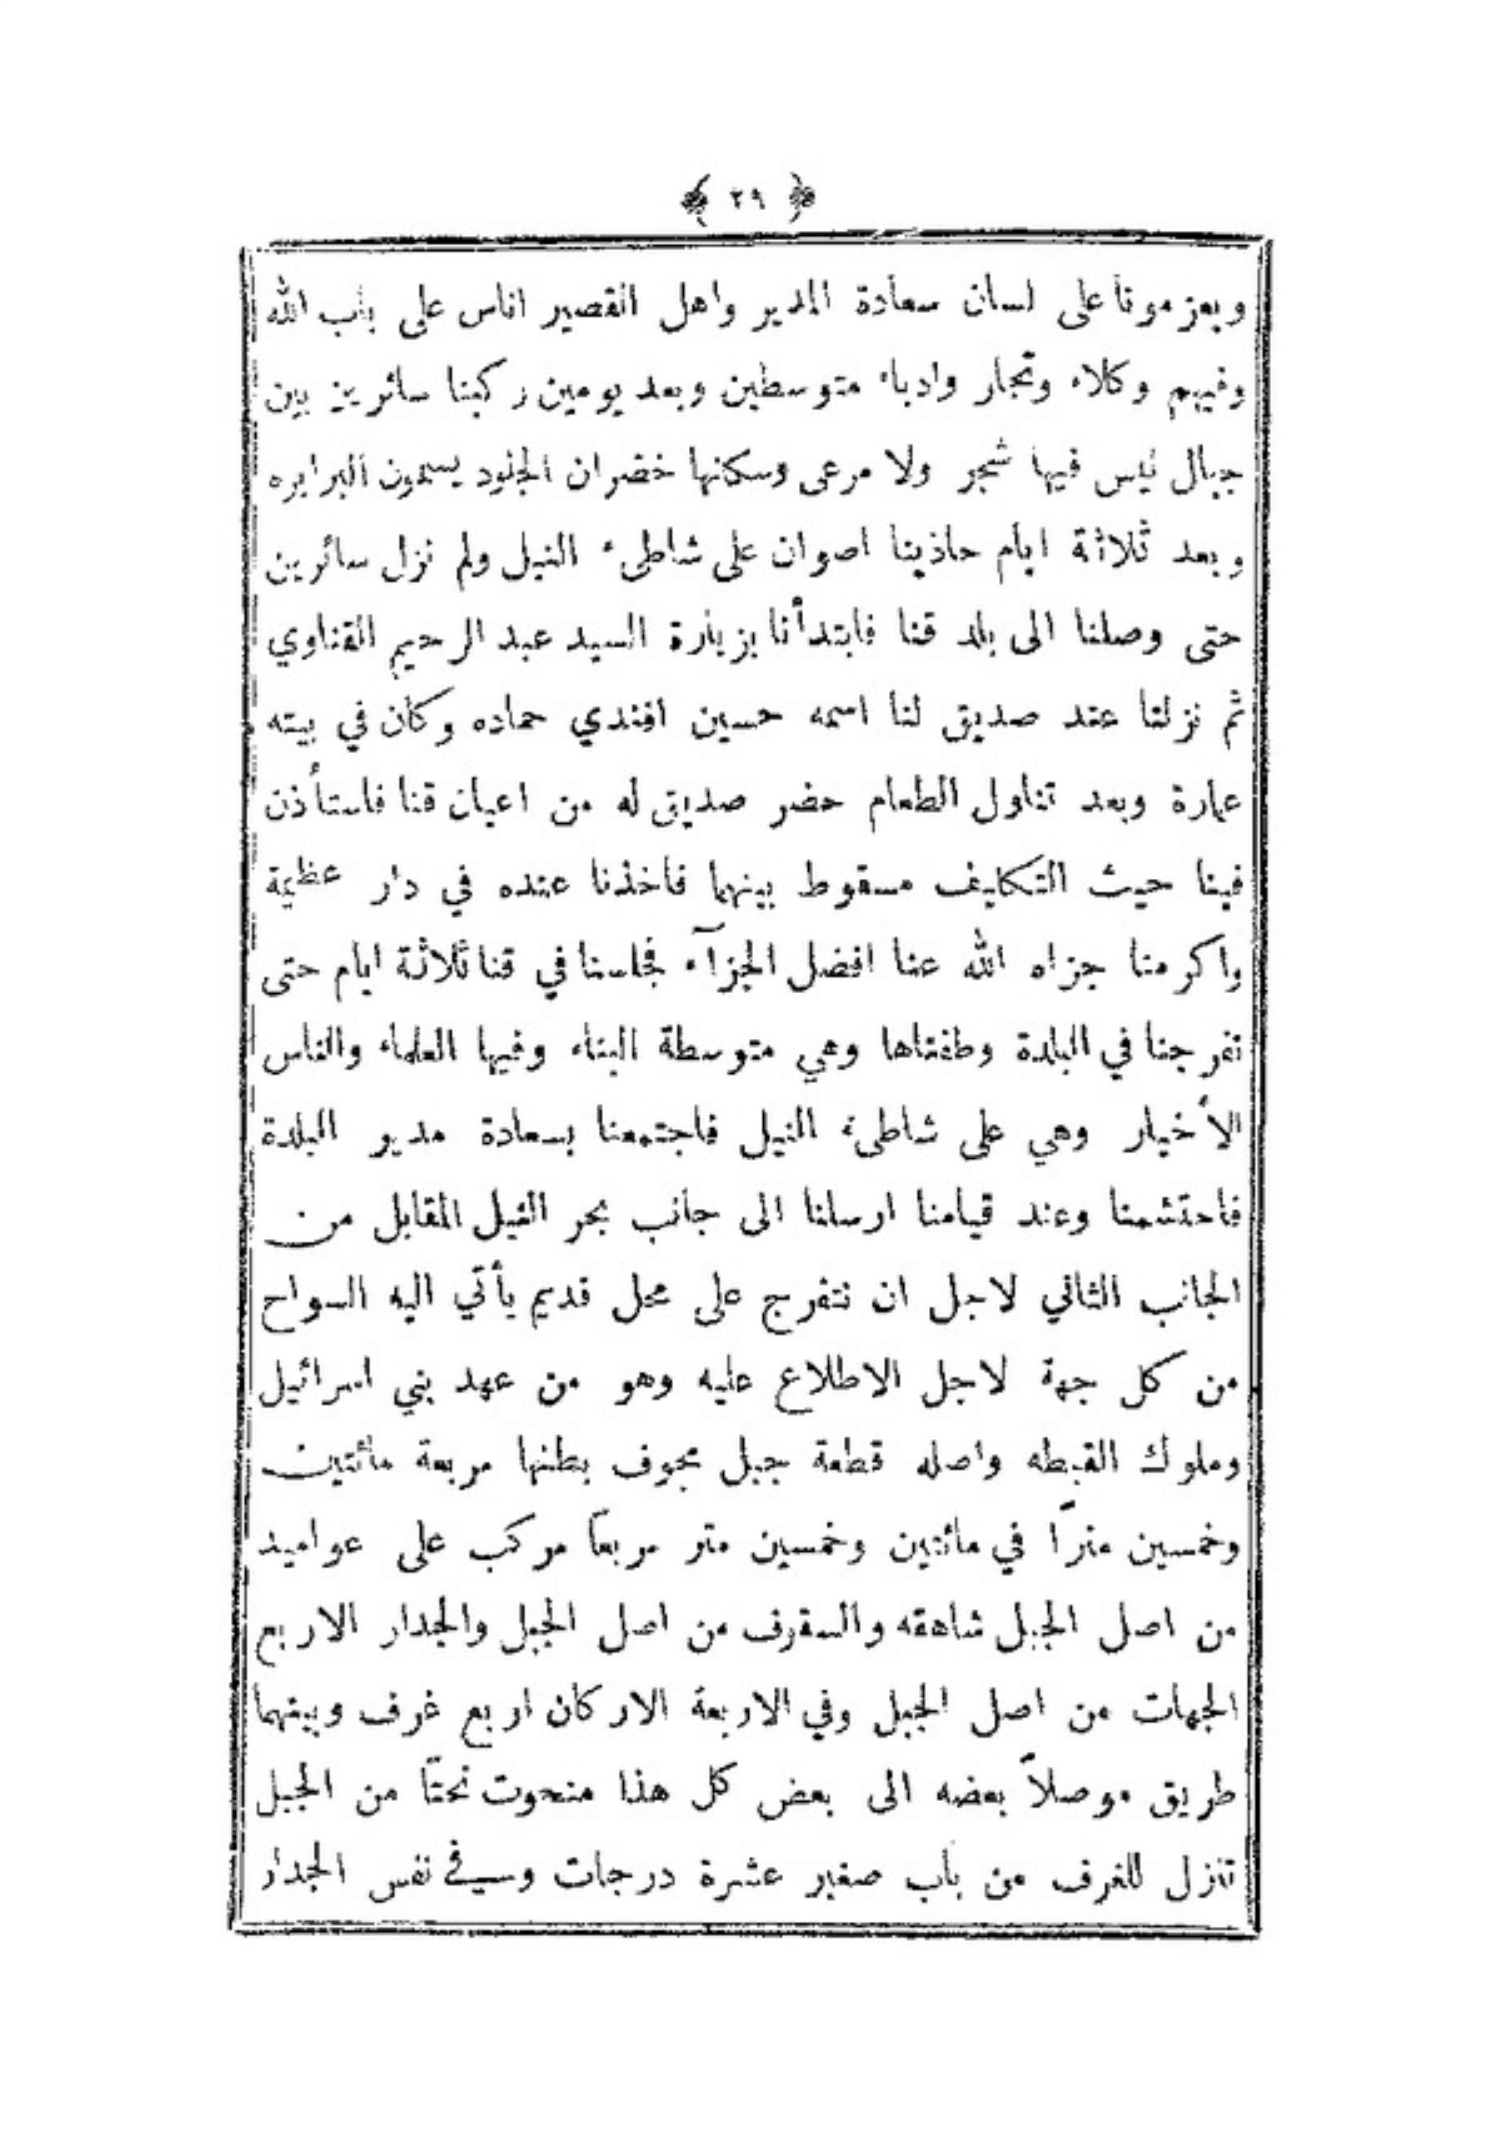 ﴿ ٢٩ ﴾
ويعزمونا على لسان سعادة المدير واهل القصير اناس على باب الله
وفيهم وكلاء وتجار وادباء متوسطين وبعد يومين ركبنا سائرين بين
جبال ليس فيها شجر ولا مرعى وسكانها خضران الجلود يسمون البرابره
وبعد ثلاثة ايام حاذينا اصوان على شاطىء النيل ولم نزل سائرين
حتى وصلنا الى بلد قنا فابتدأنا بزيارة السيد عبد الرحيم القناوي
ثم نزلنا عند صديق لنا اسمه حسين افندي حماده وكان في بيته
عمارة وبعد تناول الطعام حضر صديق له من اعيان قنا فاستأذن
فينا حيث التكليف مسقوط بينهما فاخذنا عنده في دار عظيمة
واكرمنا جزاه الله عنا افضل الجزآء فجلسنا في قنا ثلاثة ايام حتى
تفرجنا في البلدة وطفناها وهي متوسطة البناء وفيها العلماء والناس
الأخيار وهي على شاطىء النيل فاجتمعنا بسعادة مدير البلدة
فاحتشمنا وعند قيامنا ارسلنا الى جانب بحر النيل المقابل من
الجانب الثاني لاجل ان نتفرج على محل قديم يأتي اليه السواح
من كل جهة لاجل الاطلاع عليه وهو من عهد بني اسرائيل
وملوك القبطه واصله قطعة جبل مجوف بطنها مربعة مائتين
وخمسين مترًا في مائتين وخمسين متر مربعًا مركب على عواميد
من اصل الجبل شاهقه والسقوف من اصل الجبل والجدار الاربع
الجهات من اصل الجبل وفي الاربعة الاركان اربع غرف وبينهما
طريق موصلاً بعضه الى بعض كل هذا منحوت نحتًا من الجبل
تنزل للغرف من باب صغير عشرة درجات وسيف نفس الجدار